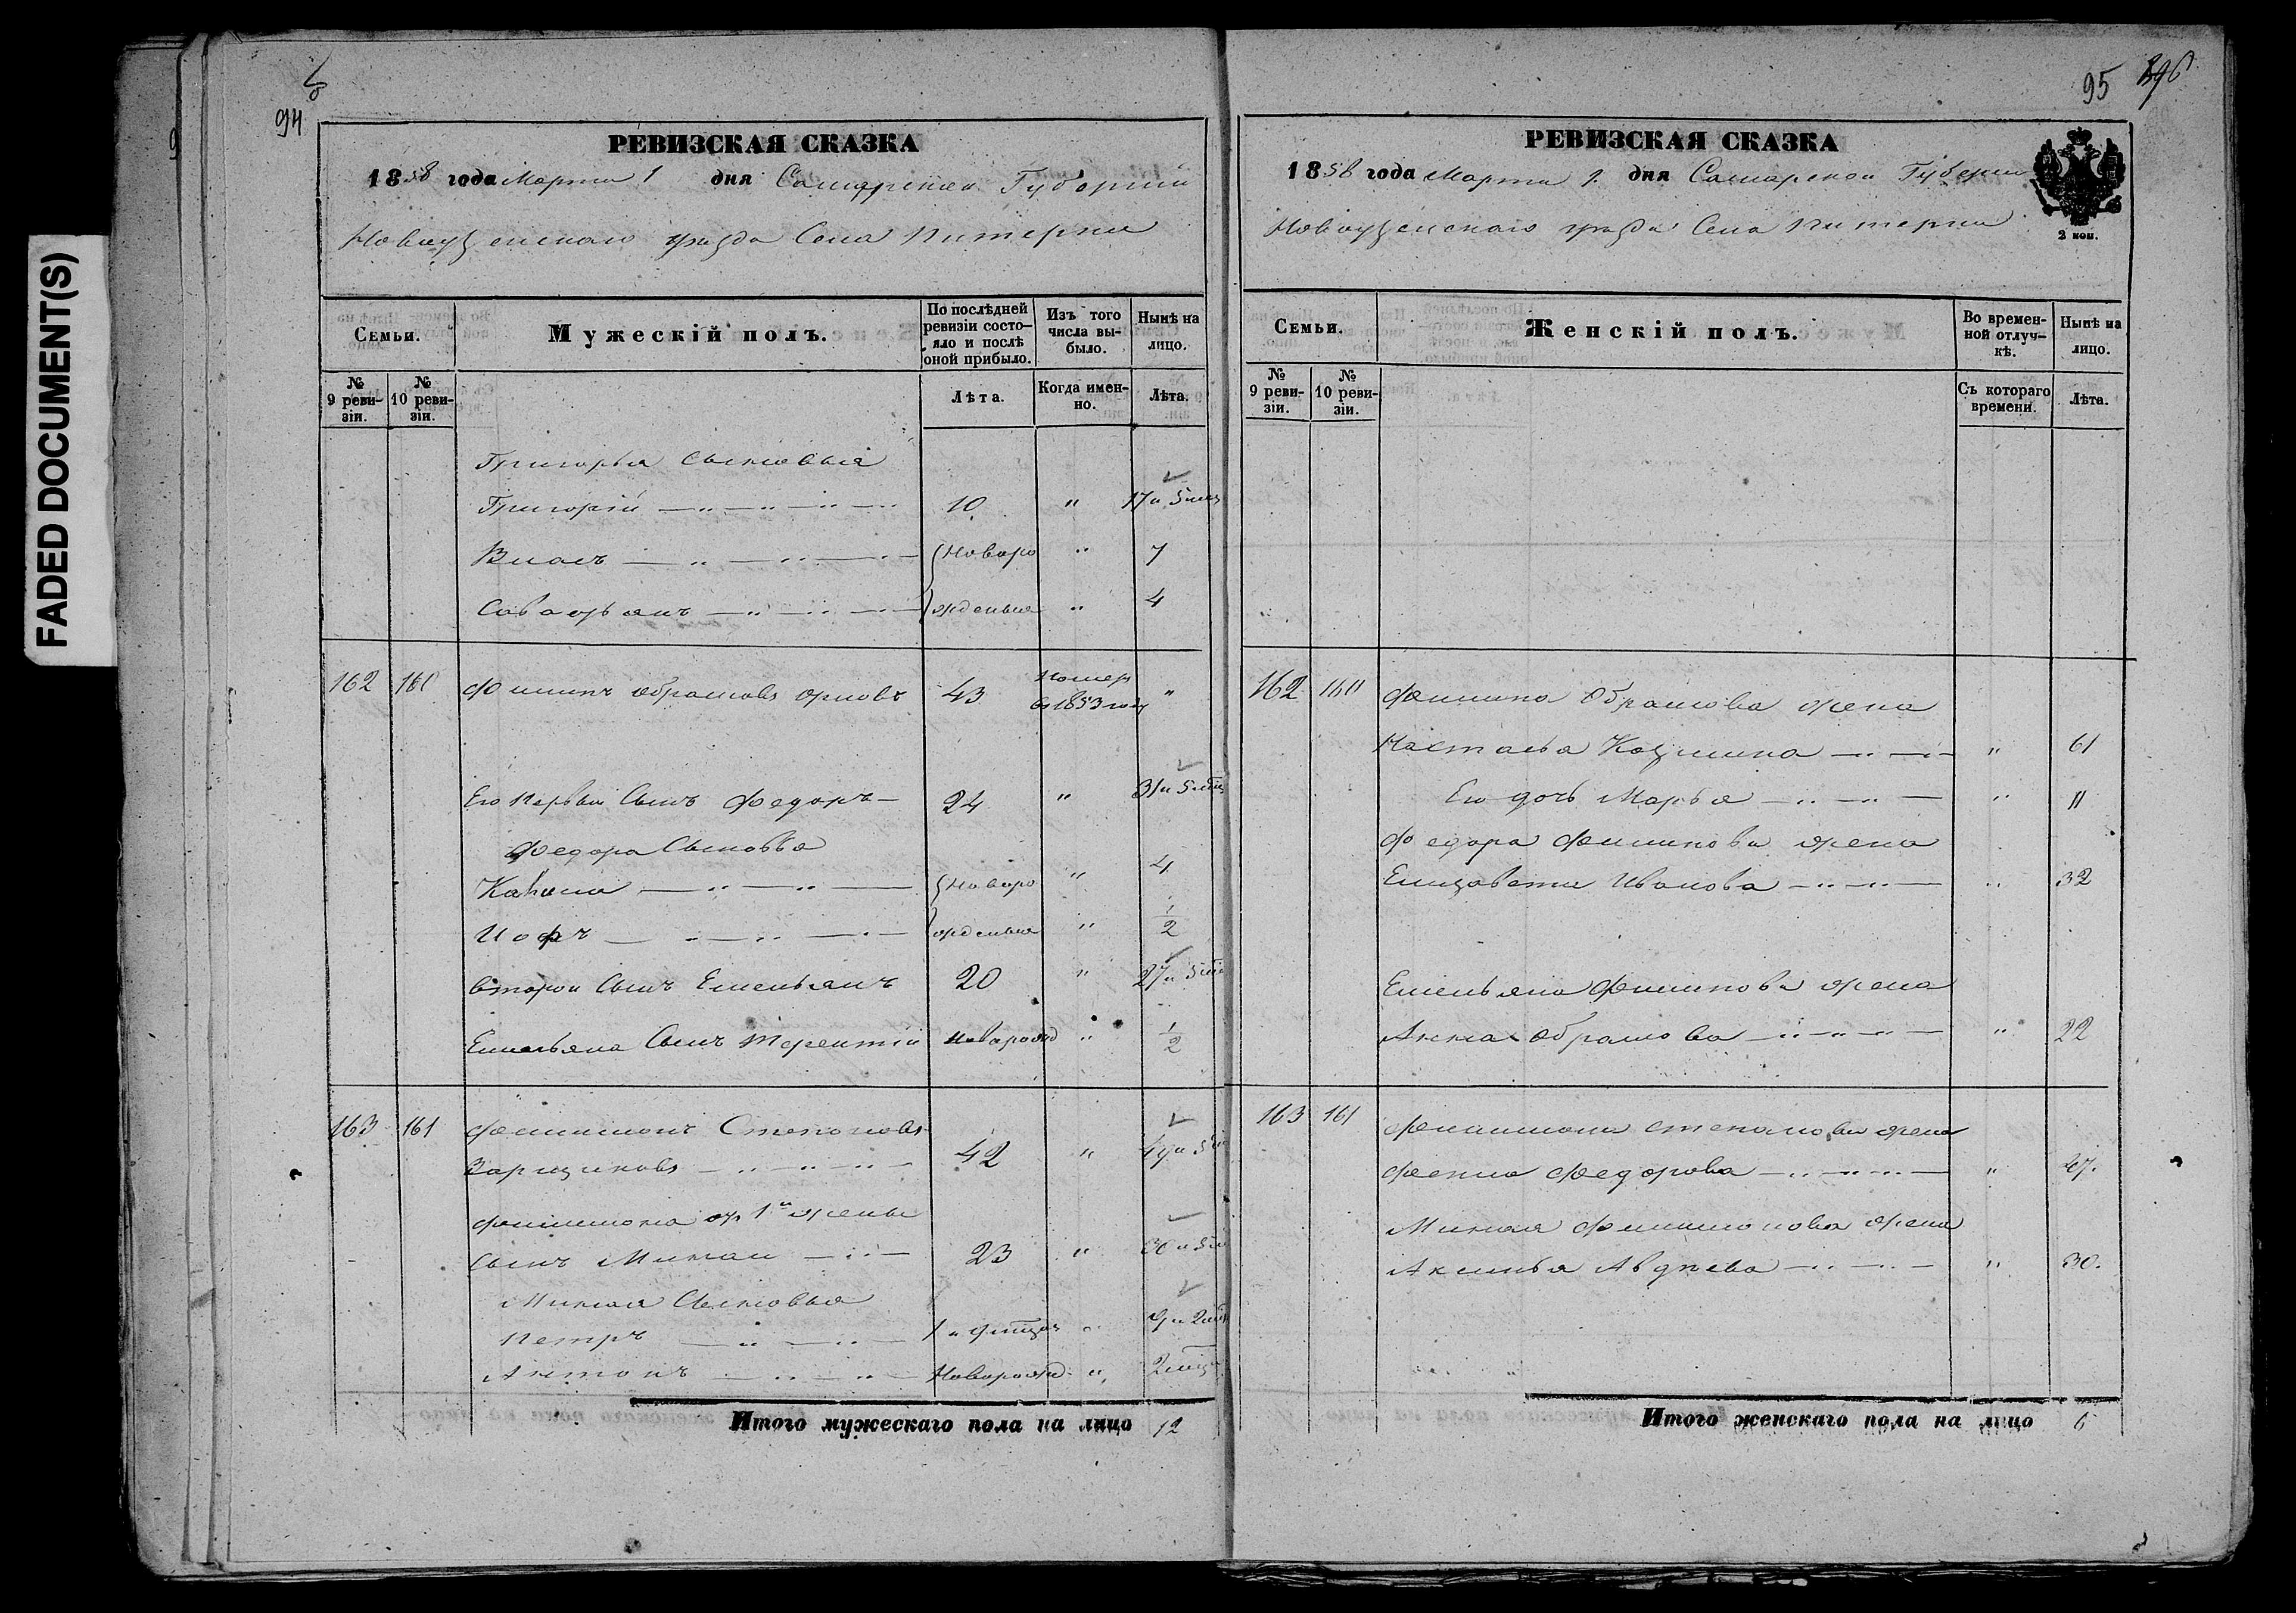 FADED DOCUMENT(S)
94
РЕВИЗСКАЯ СКАЗКА
1858 года Марта 1 дня Самарской Губернии
Новоузенскаго уезда Села Питерки
Семьи.
Мужескій полъ.
По послѣдней ревизіи состояло и послѣ оной прибыло.
Изъ того числа выбыло.
Нынѣ на лицо.
№ 9 ревизіи.
№ 10 ревизіи.
Лѣта.
Когда именно.
Лѣта.
Григорья Сыновья
Григорій 10 " 17 и 5 мец
Виалъ Новоро " 7
Савастьянъ жденные " 4
162 160 Филипъ Абрамовъ Орловъ 43 помер в 1853 году "
Его первый Сынъ Федоръ 24 " 31 и 5 мец
Федора Сыновья
Новоро " 4
Иовъ жденные " 1/2
второй Сынъ Емельянъ 20 " 27 и 5 мец
Емельяна Сынъ Терентій новорожд " 1/2
163 161 Филимонъ Степановъ
42 " 49 и 5
Филимона от 1й жены
Сынъ Минай 23 " 30 и 5
Миная Сыновья
Петръ 1 и 9 мецов " 9 и 2
Антонъ Новорожд. " 2 мец
Итого мужескаго пола на лицо 12
95
РЕВИЗСКАЯ СКАЗКА
1858 года Марта 1. дня Самарской Губернии
Новоузенскаго уезда Села Питерки
2 коп.
Семьи.
Женскій полъ.
Во временной отлучкѣ.
Нынѣ на лицо.
№ 9 ревизіи.
№ 10 ревизіи.
Съ котораго времени.
Лѣта.
162 160 Филипа Абрамова жена
Настасья Кузмина " 61
Его дочь Марья " 11
Федора Филипова жена
Елизавета Иванова " 32
Емельяна Филипова жена
Анна Абрамова " 22
163 161 Филимона степанова жена
Фекла Федорова " 47.
Миная Филимонова жена
Аксинья Авдеева " 30.
Итого женскаго пола на лицо 6